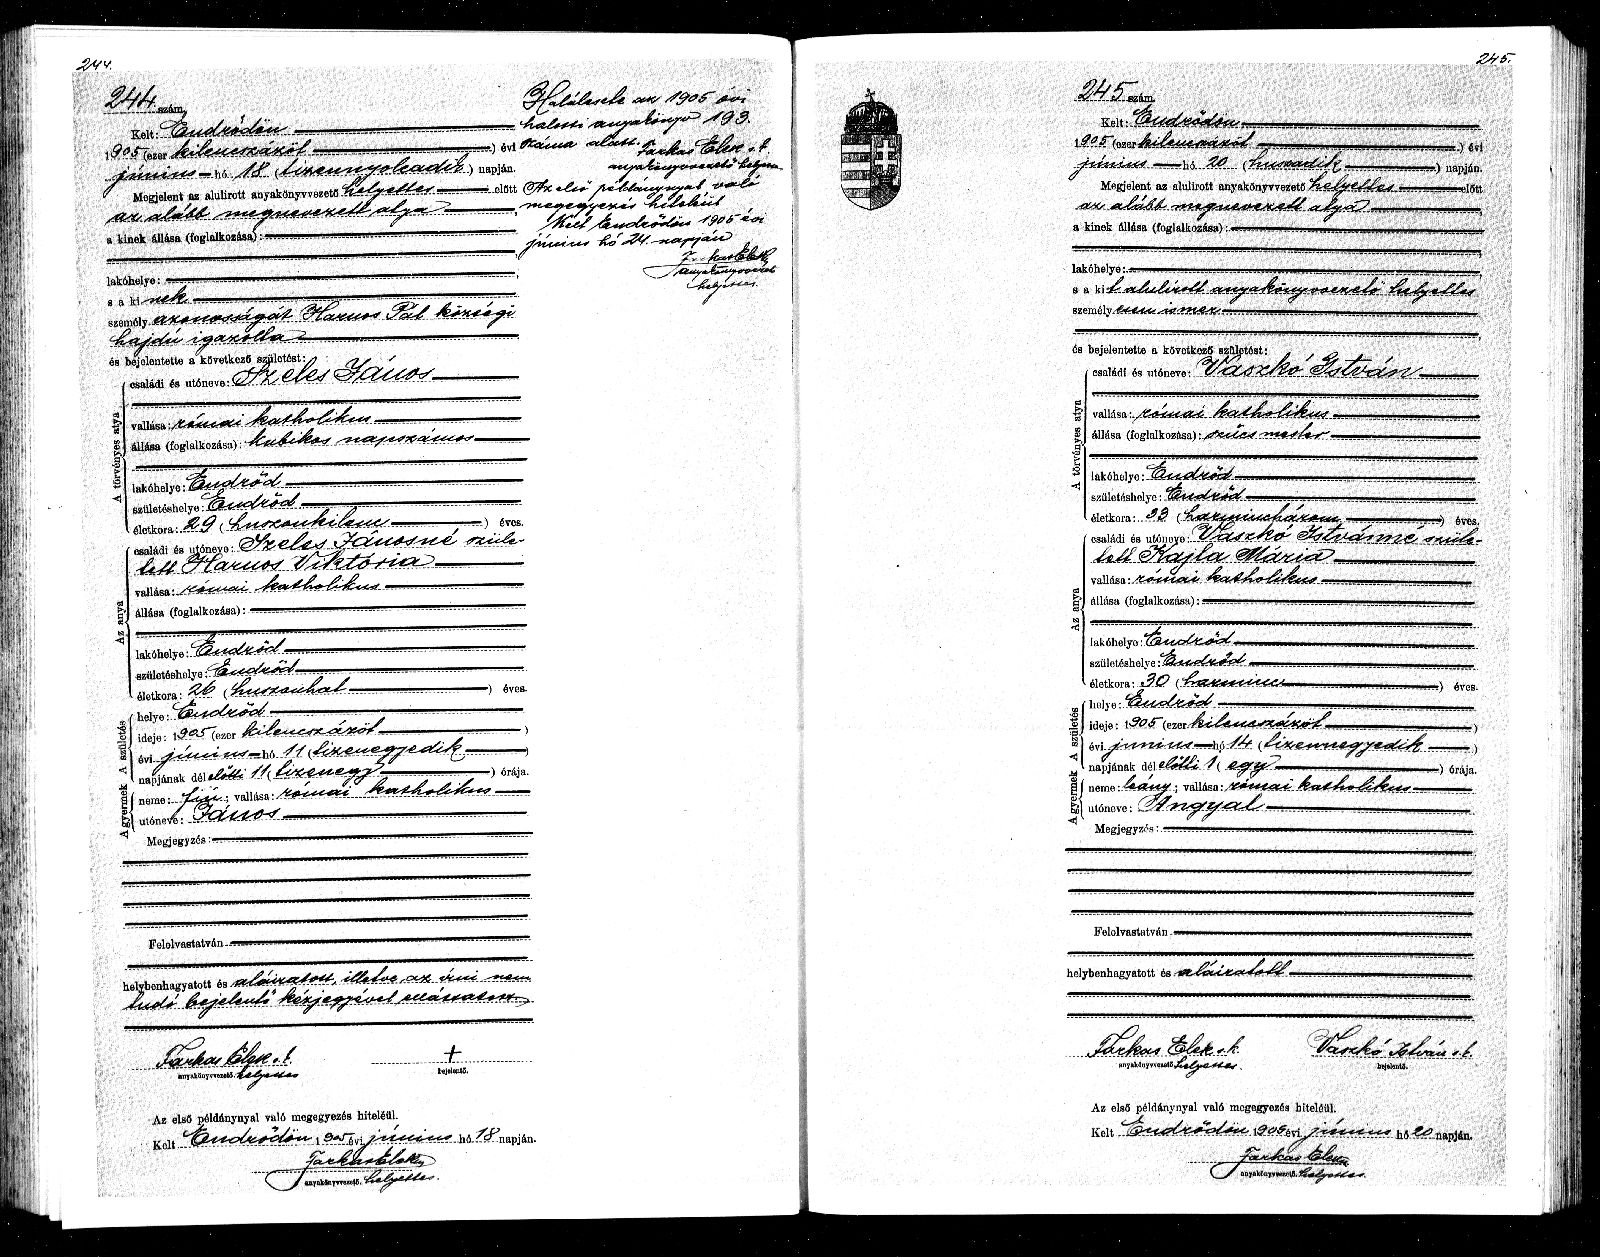 244.
244. szám.
Kelt: Endrődön
1905 (ezer kilencszázöt) évi
június hó 18 (tizennyolcadik) napján.
Megjelent az alulirott anyakönyvvezető helyettes előtt
az alább megnevezett atya
a kinek állása (foglalkozása):
lakóhelye:
s a kinek
személy azonosságát Harnos Pál községi
hajdú igazolta
és bejelentette a következő születést:
A törvényes atya
családi és utóneve: Szeles János
vallása: római katholikus
állása (foglalkozása): kubikos napszámos
lakóhelye: Endrőd
születéshelye: Endrőd
életkora: 29 (huszonkilenc) éves.
Az anya
családi és utóneve: Szeles Jánosné szüle-
tett Harnos Viktória
vallása: római katholikus
állása (foglalkozása):
lakóhelye: Endrőd
születéshelye: Endrőd
életkora: 26 (huszonhat) éves.
A születés
helye: Endrőd
ideje: 1905 (ezer kilencszázöt)
évi június hó 11 (tizenegyedik)
napjának dél előtti 11 (tizenegy) órája.
A gyermek
neme: fiú; vallása: római katholikus
utóneve: János
Megjegyzés:
Felolvastatván
helybenhagyatott és aláiratott, illetve az írni nem
tudó bejelentő kézjegyével elláttatott
Farkas Elek s. k.
anyakönyvvezető helyettes
+
bejelentő.
Az első példánynyal való megegyezés hiteléül.
Kelt Endrődön 1905 évi június hó 18 napján.
Farkas Elek
anyakönyvvezető. helyettes.
Halálesete az 1905 évi
halotti anyakönyv 193.
száma alatt. Farkas Elek s. k.
anyakönyvvezető helyettes
Az első példánynyal való
megegyezés hiteléül
Kelt Endrődön 1905 évi
június hó 24. napján
Farkas Elek
anyakönyvvezető
helyettes.
245.
245 szám.
Kelt: Endrődön
1905 (ezer kilencszázöt) évi
június hó 20 (huszadik) napján.
Megjelent az alulirott anyakönyvvezető helyettes előtt
az alább megnevezett atya
a kinek állása (foglalkozása):
lakóhelye:
s a kit alulirott anyakönyvvezető helyettes
személyesen ismer
és bejelentette a következő születést:
A törvényes atya
családi és utóneve: Vaszkó István
vallása: római katholikus
állása (foglalkozása): szűcs mester
lakóhelye: Endrőd
születéshelye: Endrőd
életkora: 33 (harminchárom) éves.
Az anya
családi és utóneve: Vaszkó Istvánné szüle-
tett Hajla Mária
vallása: római katholikus
állása (foglalkozása):
lakóhelye: Endrőd
születéshelye: Endrőd
életkora: 30 (harminc) éves.
A születés
helye: Endrőd
ideje: 1905 (ezer kilencszázöt)
évi június hó 14 (tizennegyedik)
napjának dél előtti 1 (egy) órája.
A gyermek
neme: leány; vallása: római katholikus
utóneve: Angyal
Megjegyzés:
Felolvastatván
helybenhagyatott és aláiratott
Farkas Elek s. k.
anyakönyvvezető helyettes.
Vaszkó István s. k.
bejelentő.
Az első példánynyal való megegyezés hiteléül.
Kelt Endrődön 1905 évi június hó 20 napján.
Farkas Elek
anyakönyvvezető. helyettes.